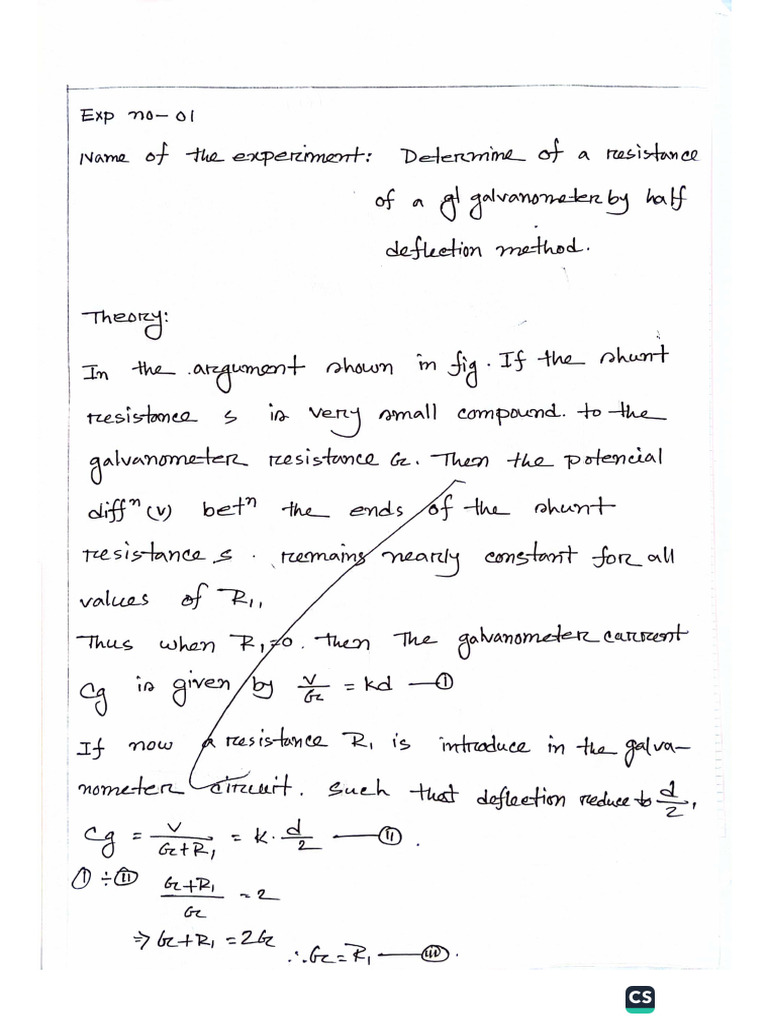 Exp no- 01
Name of the experiment: Determine of a resistance
of a gl galvanometer by half
deflection method.
Theory:
In the argument shown in fig. If the shunt
resistance s is very small compound. to the
galvanometer resistance G. Then the potencial
diffⁿ (v) betⁿ the ends of the shunt
resistance s. remains nearly constant for all
values of R₁,
Thus when R₁=0. then The galvanometer current
Cg is given by V/G = kd —Ⓘ
If now a resistance R₁ is introduce in the galva-
nometer circuit. Such that deflection reduce to d/2,
Cg = V/G+R₁ = K. d/2 —ⓘⓘ.
Ⓘ ÷ ⓘⓘ G+R₁/G = 2
⇒ G+R₁ = 2G ∴ G = R₁ —ⓘⓘⓘ.
CS